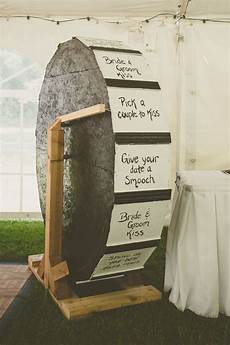 Bride &
Groom
Kiss
Pick a
couple to Kiss
Give your
date a
Smooch
Bride &
Groom
Kiss